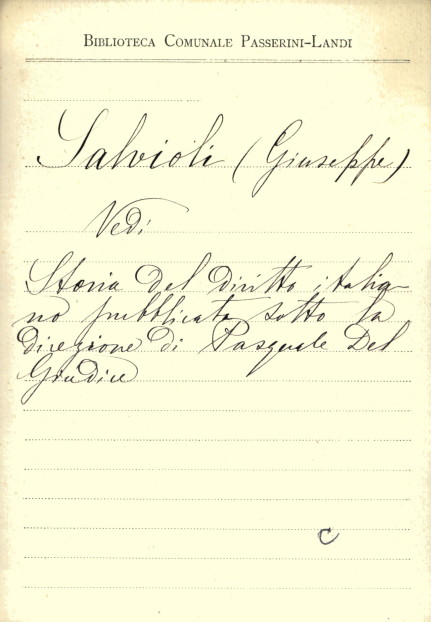 BIBLIOTECA COMUNALE PASSERINI-LANDI
Salvioli (Giuseppe)
Vedi
Storia del diritto italia-
no pubblicata sotto la
direzione di Pasquale Del
Giudice
C